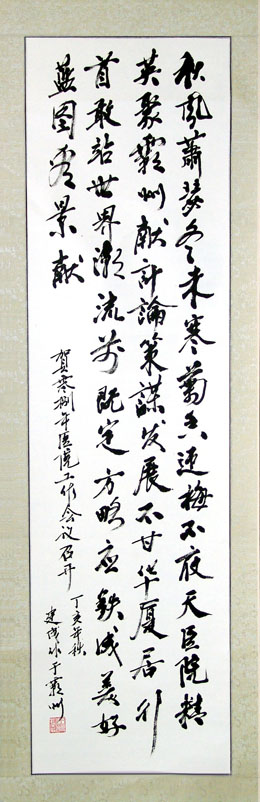 秋風蕭瑟冬未寒菊香迎梅不夜天医院精
英聚霸州献計論策謀发展不甘华厦居
首敢站世界潮流前既定方略应铁成美好
蓝图景献
賀零捌年医院工作会议召开
丁亥年秋
建成作于霸州